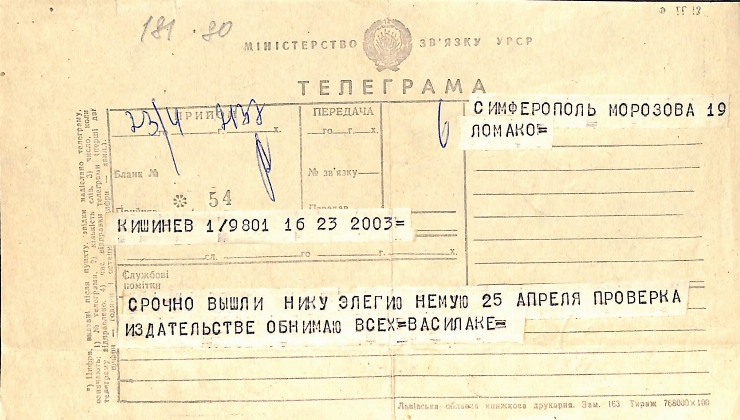 181 · 80
МІНІСТЕРСТВО ЗВ'ЯЗКУ УРСР
ТЕЛЕГРАМА
ПРИЙОМ
23/4
го г. х.
Бланк №
✻ 54
ПЕРЕДАЧА
го г. х.
№ зв'язку
Передав
СИМФЕРОПОЛЬ МОРОЗОВА 19
ЛОМАКО=
КИШИНЕВ 1/9801 16 23 2003=
сл. го г. х.
Службові
помітки
СРОЧНО ВЫШЛИ НИКУ ЭЛЕГИЮ НЕМУЮ 25 АПРЕЛЯ ПРОВЕРКА
ИЗДАТЕЛЬСТВЕ ОБНИМАЮ ВСЕХ=ВАСИЛАКЕ=
Львівська обласна книжкова друкарня. Зам. 163 Тираж 768000×100